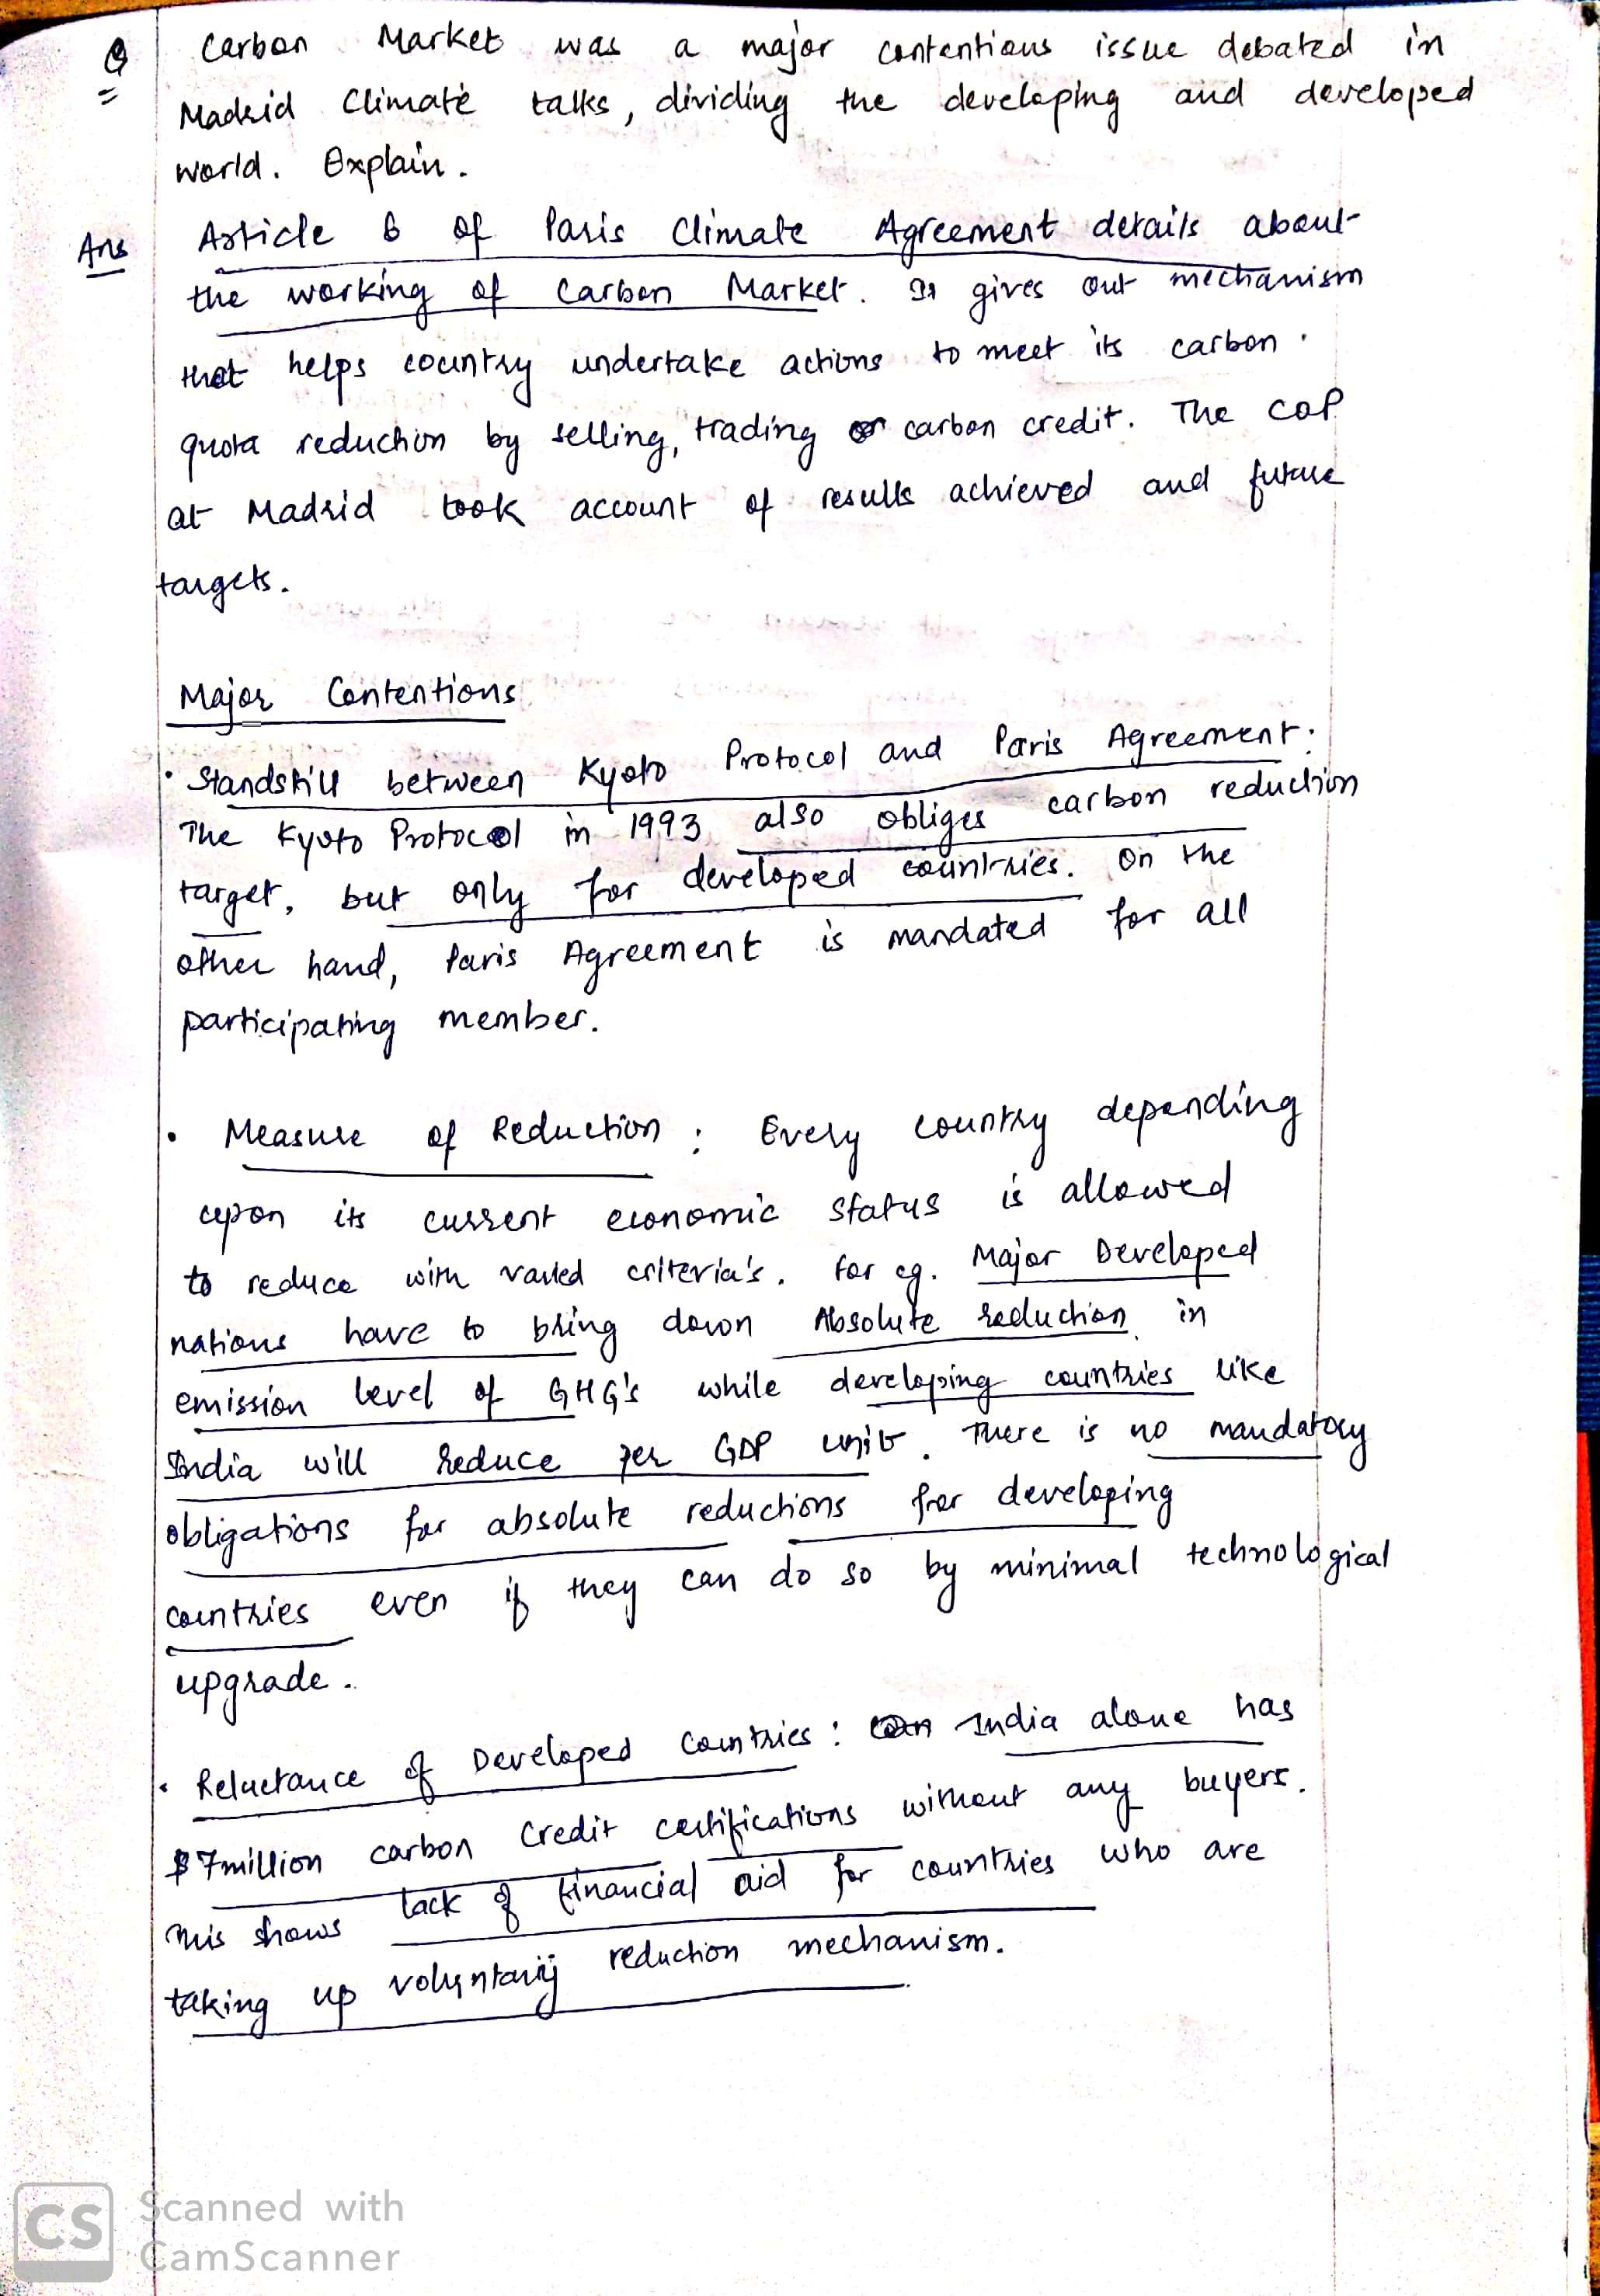 Q Carbon Market was a major contentious issue debated in
Madrid Climate talks, dividing the developing and developed
world. Explain.
Ans Article 6 of Paris Climate Agreement details about
the working of Carbon Market. It gives out mechanism
that helps country undertake actions to meet its carbon
quota reduction by selling, trading carbon credit. The COP
at Madrid took account of results achieved and future
targets.
Major Contentions
• Standstill between Kyoto Protocol and Paris Agreement:
The Kyoto Protocol in 1993 also obliges carbon reduction
target, but only for developed countries. On the
other hand, Paris Agreement is mandated for all
participating member.
• Measure of Reduction: Every country depending
upon its current economic status is allowed
to reduce with varied criteria's. For eg. Major Developed
nations have to bring down Absolute reduction in
emission level of GHG's while developing countries like
India will reduce per GDP unit. There is no mandatory
obligations for absolute reductions for developing
countries even if they can do so by minimal technological
upgrade.
• Reluctance of Developed Countries: India alone has
$7million carbon credit certifications without any buyers.
This shows lack of financial aid for countries who are
taking up voluntary reduction mechanism.
CS Scanned with
CamScanner